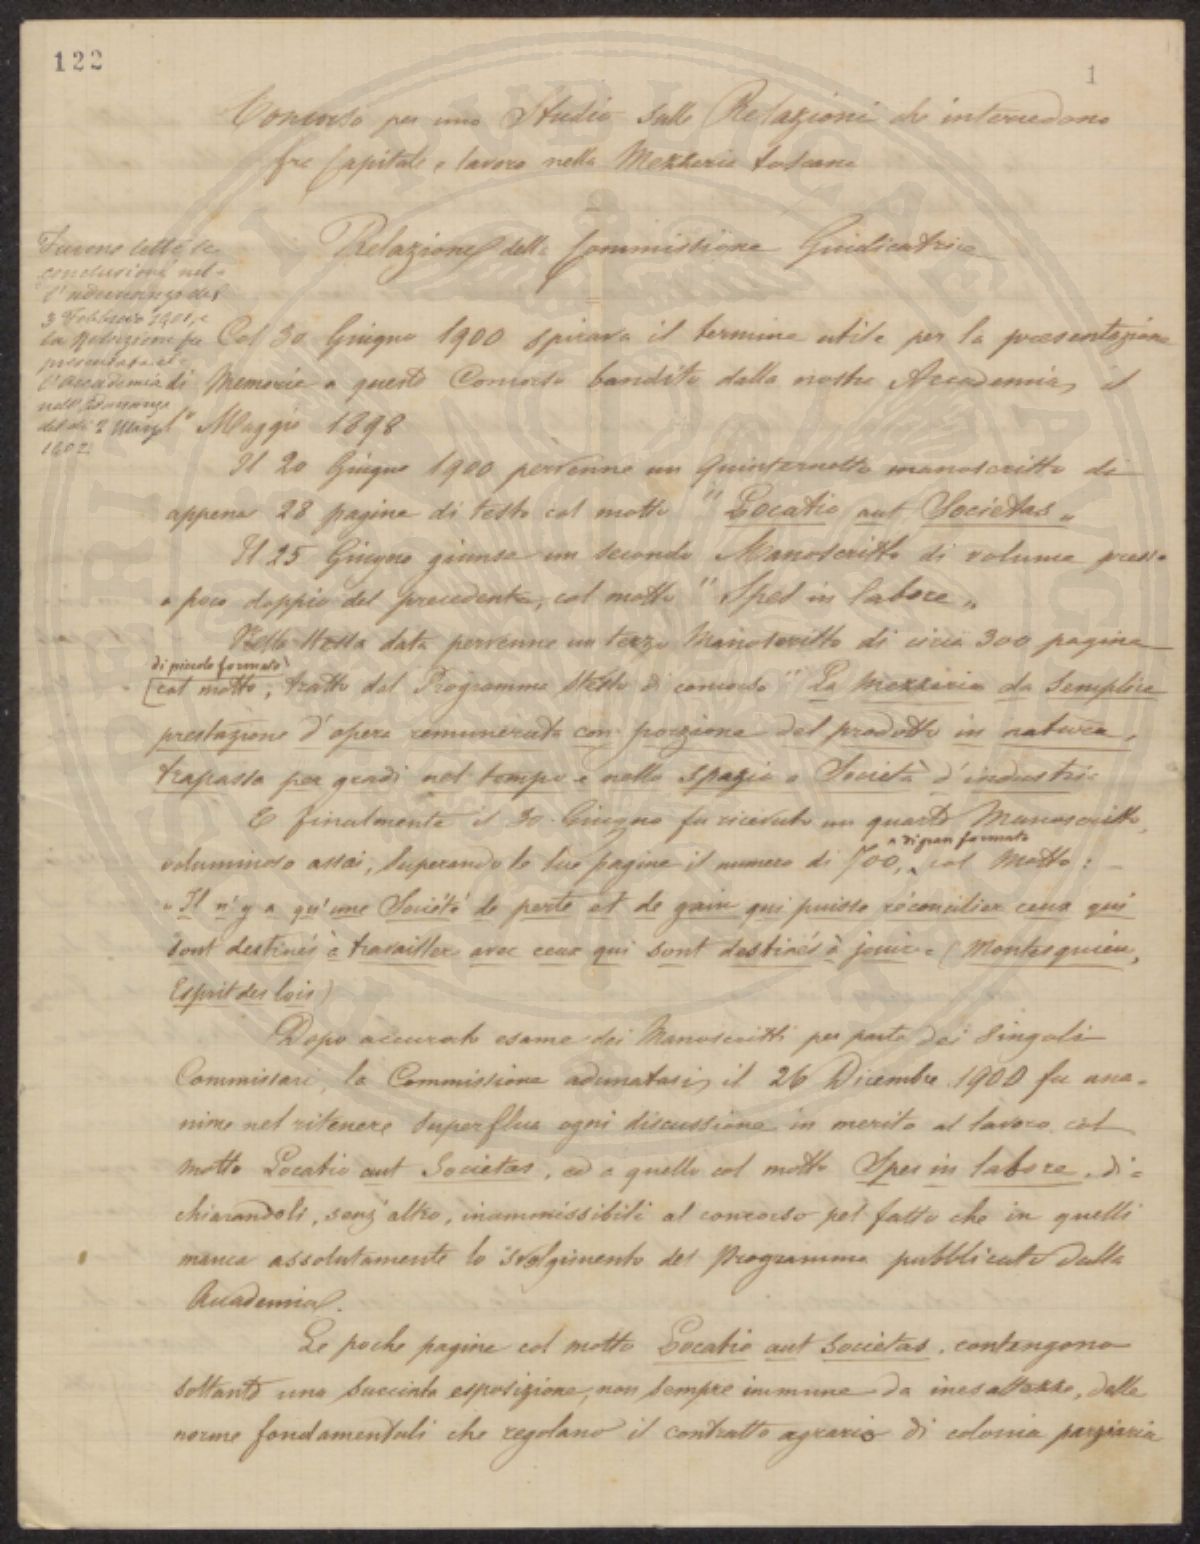 122
1
Concorso per uno Studio sulle Relazioni che intercedono
fra Capitale e lavoro nella Mezzeria toscana
Relazione della Commissione Giudicatrice
Furono lette le
conclusioni nel-
l'adunanza del
3 Febbraio 1901, e
la Relazione fu
presentata al-
l'Accademia
nell'Adunanza
del dì 2 Marzo
1902.
Col 30 Giugno 1900 spirava il termine utile per la presentazione
di Memorie a questo Concorso bandito dalla nostra Accademia, il
1° Maggio 1898
Il 20 Giugno 1900 pervenne un Quinternetto manoscritto di
appena 28 pagine di testo col motto "Locatio aut Societas„
Il 25 Giugno giunse un secondo Manoscritto di volume presso
a poco doppio del precedente, col motto "Spes in labore„
Nella stessa data pervenne un terzo Manoscritto di circa 300 pagine
di piccolo formato
col motto, tratto dal Programma stesso di concorso "La mezzeria da semplice
prestazione d'opera remunerata con porzione del prodotto in natura,
trapassa per gradi nel tempo e nello spazio a Società d'industria
E finalmente il 30 Giugno fu ricevuto un quarto Manoscritto,
voluminoso assai, superando le sue pagine il numero di 700, col Motto:
a di gran formato
"Il n'y a qu'une Société de perte et de gain qui puisse réconcilier ceux qui
sont destinés à travailler avec ceux qui sont destinés à jouir" (Montesquieu,
Esprit des lois)
Dopo accurato esame dei Manoscritti per parte dei singoli
Commissari, la Commissione adunatasi, il 26 Dicembre 1900 fu una-
nime nel ritenere superflua ogni discussione in merito al lavoro col
motto Locatio aut Societas, ed a quello col motto Spes in labore, di-
chiarandoli, senz'altro, inammissibili al concorso pel fatto che in quelli
manca assolutamente lo svolgimento del Programma pubblicato dalla
Accademia.
Le poche pagine col motto Locatio aut Societas, contengono
soltanto una succinta esposizione, non sempre immune da inesattezze, delle
norme fondamentali che regolano il contratto agrario di colonia parziaria